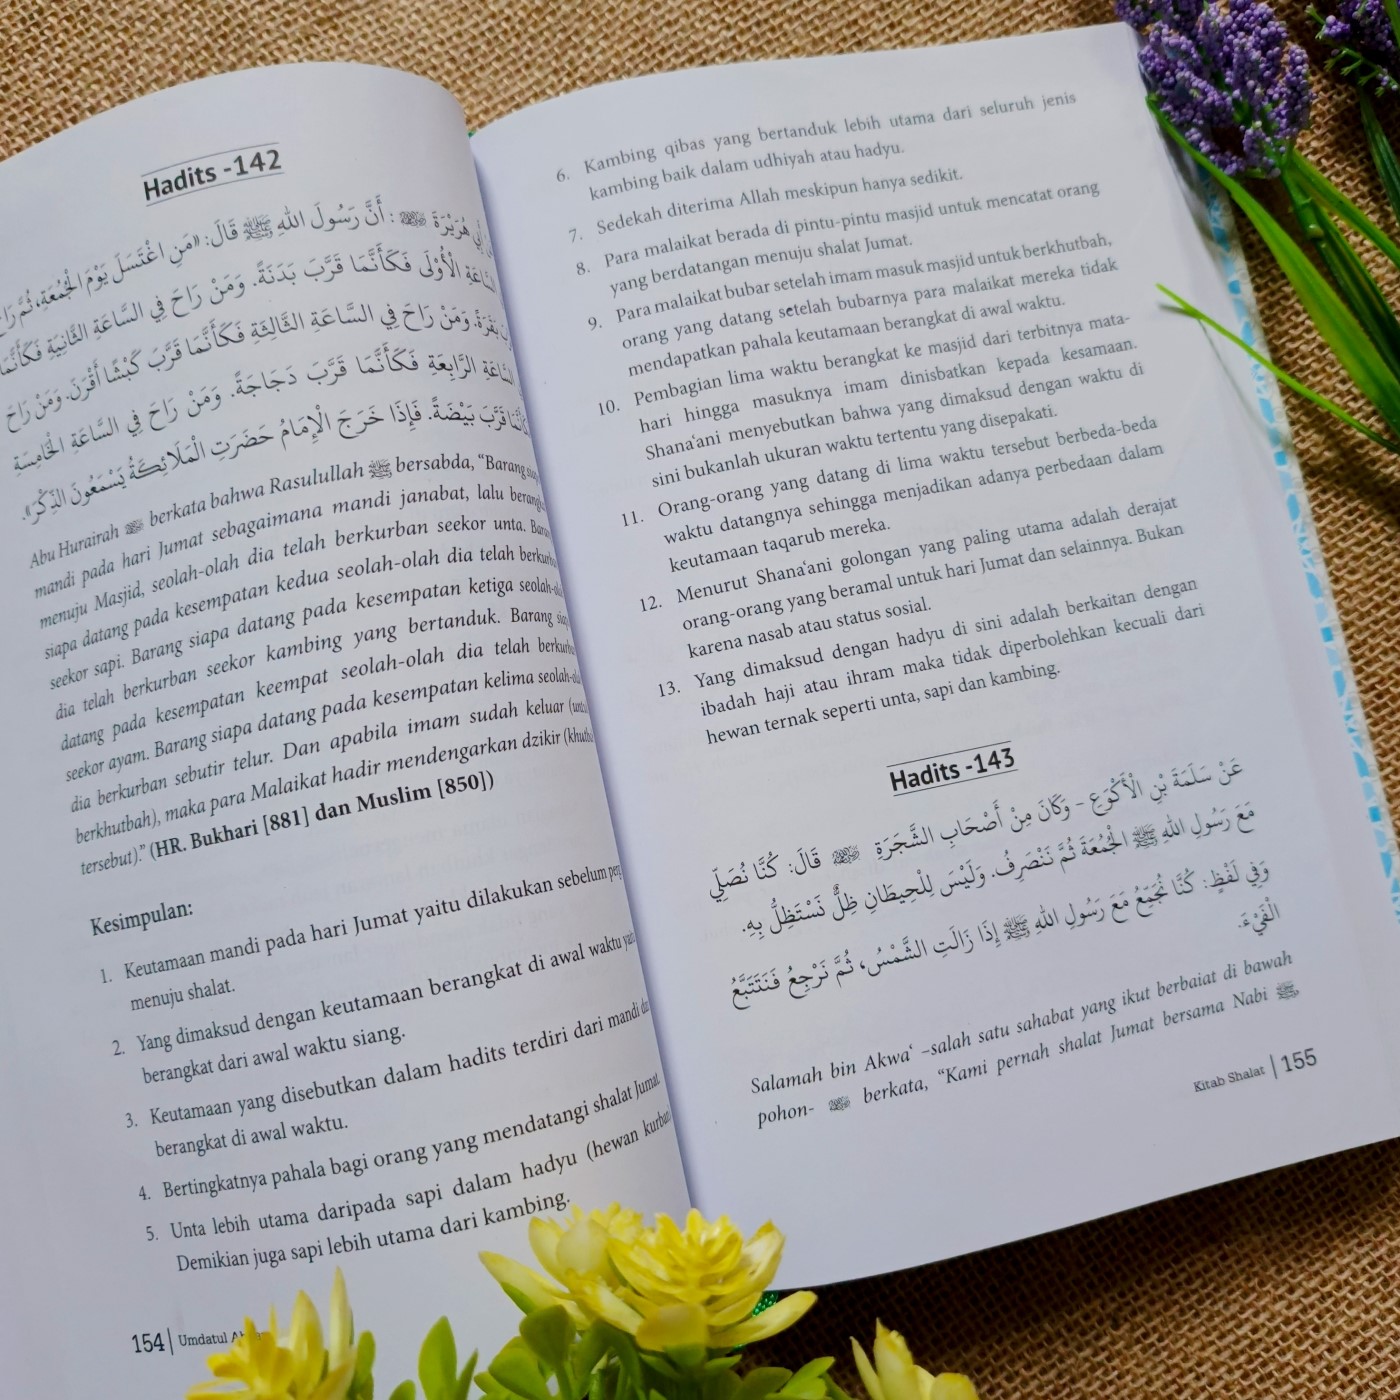 Hadits -142
أَبِي هُرَيْرَةَ ﵁ : أَنَّ رَسُولَ اللهِ ﷺ قَالَ: «مَنِ اغْتَسَلَ يَوْمَ الْجُمُعَةِ، ثُمَّ رَاحَ
السَّاعَةِ الْأُوْلَى فَكَأَنَّمَا قَرَّبَ بَدَنَةً. وَمَنْ رَاحَ فِي السَّاعَةِ الثَّانِيَةِ فَكَأَنَّمَا
بَقَرَةً. وَمَنْ رَاحَ فِي السَّاعَةِ الثَّالِثِةِ فَكَأَنَّمَا قَرَّبَ كَبْشًا أَقْرَنَ. وَمَنْ رَاحَ
السَّاعَةِ الرَّابِعَةِ فَكَأَنَّمَا قَرَّبَ دَجَاجَةً. وَمَنْ رَاحَ فِي السَّاعَةِ الْخَامِسَةِ
قَرَّبَ بَيْضَةً. فَإِذَا خَرَجَ الْإِمَامُ حَضَرَتِ الْمَلَائِكَةُ يَسْمَعُونَ الذِّكْرَ».
Abu Hurairah ﵁ berkata bahwa Rasulullah ﷺ bersabda, “Barang
mandi pada hari Jumat sebagaimana mandi janabat, lalu
menuju Masjid, seolah-olah dia telah berkurban seekor unta.
siapa datang pada kesempatan kedua seolah-olah dia telah
seekor sapi. Barang siapa datang pada kesempatan ketiga
dia telah berkurban seekor kambing yang bertanduk. Barang
datang pada kesempatan keempat seolah-olah dia telah
seekor ayam. Barang siapa datang pada kesempatan kelima
dia berkurban sebutir telur. Dan apabila imam sudah keluar
berkhutbah), maka para Malaikat hadir mendengarkan dzikir
tersebut).” (HR. Bukhari [881] dan Muslim [850])
Kesimpulan:
1. Keutamaan mandi pada hari Jumat yaitu dilakukan sebelum
menuju shalat.
2. Yang dimaksud dengan keutamaan berangkat di awal waktu
berangkat dari awal waktu siang.
3. Keutamaan yang disebutkan dalam hadits terdiri dari mandi
berangkat di awal waktu.
4. Bertingkatnya pahala bagi orang yang mendatangi shalat Jumat.
5. Unta lebih utama daripada sapi dalam hadyu (hewan
Demikian juga sapi lebih utama dari kambing.
154 | Umdatul
6. Kambing qibas yang bertanduk lebih utama dari seluruh jenis
kambing baik dalam udhiyah atau hadyu.
7. Sedekah diterima Allah meskipun hanya sedikit.
8. Para malaikat berada di pintu-pintu masjid untuk mencatat orang
yang berdatangan menuju shalat Jumat.
9. Para malaikat bubar setelah imam masuk masjid untuk berkhutbah,
orang yang datang setelah bubarnya para malaikat mereka tidak
mendapatkan pahala keutamaan berangkat di awal waktu.
10. Pembagian lima waktu berangkat ke masjid dari terbitnya mata-
hari hingga masuknya imam dinisbatkan kepada kesamaan.
Shana‘ani menyebutkan bahwa yang dimaksud dengan waktu di
sini bukanlah ukuran waktu tertentu yang disepakati.
11. Orang-orang yang datang di lima waktu tersebut berbeda-beda
waktu datangnya sehingga menjadikan adanya perbedaan dalam
keutamaan taqarub mereka.
12. Menurut Shana‘ani golongan yang paling utama adalah derajat
orang-orang yang beramal untuk hari Jumat dan selainnya. Bukan
karena nasab atau status sosial.
13. Yang dimaksud dengan hadyu di sini adalah berkaitan dengan
ibadah haji atau ihram maka tidak diperbolehkan kecuali dari
hewan ternak seperti unta, sapi dan kambing.
Hadits -143
عَنْ سَلَمَةَ بْنِ الْأَكْوَعِ – وَكَانَ مِنْ أَصْحَابِ الشَّجَرَةِ ﵁ قَالَ: كُنَّا نُصَلِّي
مَعَ رَسُولِ اللهِ ﷺ الْجُمُعَةَ ثُمَّ نَنْصَرِفُ. وَلَيْسَ لِلْحِيطَانِ ظِلٌّ نَسْتَظِلُّ بِهِ.
وَفِي لَفْظٍ: كُنَّا نُجَمِّعُ مَعَ رَسُولِ اللهِ ﷺ إِذَا زَالَتِ الشَّمْسُ، ثُمَّ نَرْجِعُ فَنَتَتَبَّعُ
الْفَيْءَ.
Salamah bin Akwa‘ –salah satu sahabat yang ikut berbaiat di bawah
pohon- ﵁ berkata, “Kami pernah shalat Jumat bersama Nabi ﷺ,
Kitab Shalat | 155